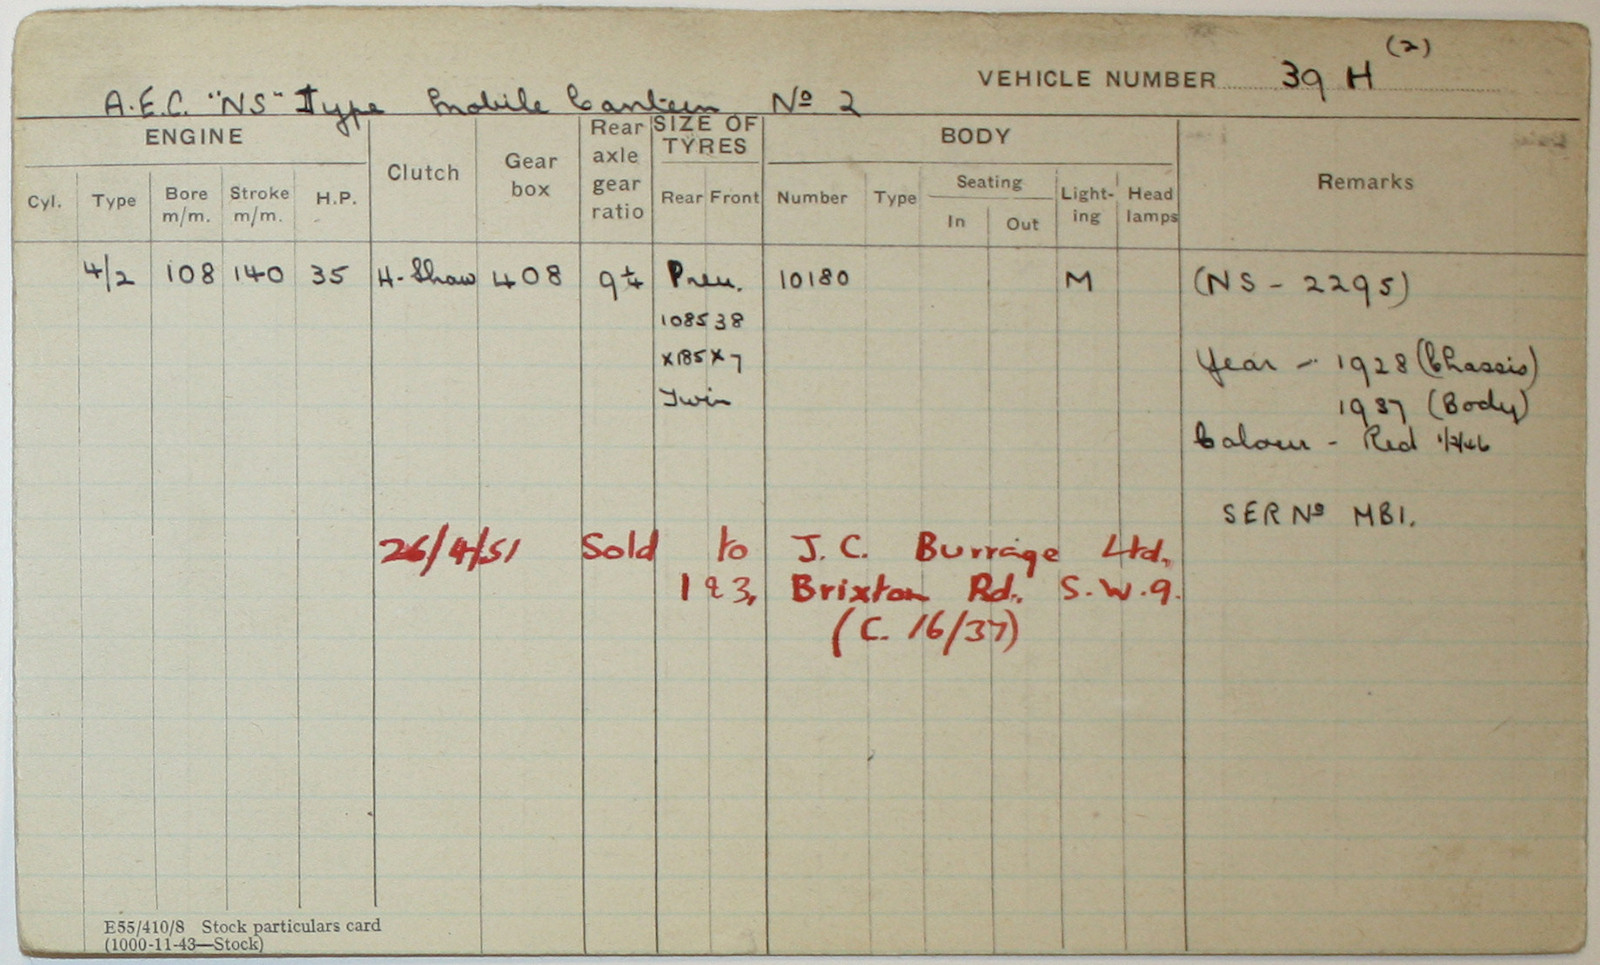 (2)
VEHICLE NUMBER 39 H
A.E.C. "NS" Type Mobile Canteen No 2
ENGINE Clutch Gear box Rear axle gear ratio SIZE OF TYRES BODY Remarks
Cyl. Type Bore m/m. Stroke m/m. H.P. Rear Front Number Type Seating In Out Light-ing Head lamps
4/2 108 140 35 H-Shaw 408 Pneu. 10180 M (NS - 2295)
1085 38
x185 x7 Year - 1928 (Chassis)
Twin 1937 (Body)
Colour - Red
SER No MB1.
26/4/51 Sold to J.C. Burrage Ltd.
1 & 3, Brixton Rd. S.W.9.
(C. 16/37)
E55/410/8 Stock particulars card
(1000-11-43—Stock)